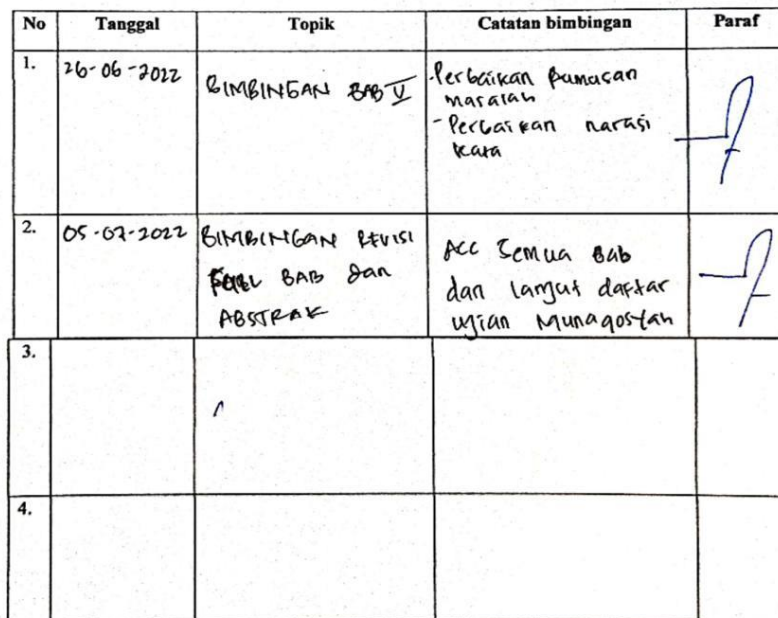 No Tanggal Topik Catatan bimbingan Paraf
1. 26-06-2022 BIMBINGAN BAB V - Perbaikan Rumusan
masalah
- Perbaikan narasi
kata
2. 05-07-2022 BIMBINGAN REVISI ACC Semua Bab
BAB dan dan lanjut daftar
ABSTRAK ujian Munaqosyah
3.
4.